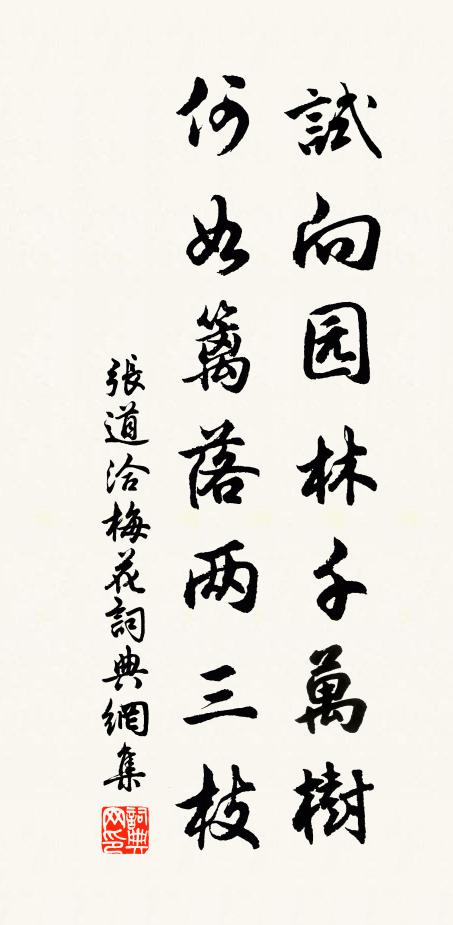 試向园林千萬樹
何如籬落两三枝
張道洽梅花詞典網集
詞典网印